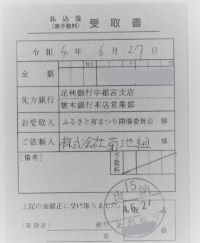 払込金
(兼手数料)
受取書
令和 4年 6月 27日
金額
先方銀行 足利銀行宇都宮支店
栃木銀行本店営業部
お受取人 ふるさと宮まつり開催委員会 様
ご依頼人 株式会社菊地組 様
(備考) 手数料
上記の金額正に受け取りました。
(取扱店) 銀行